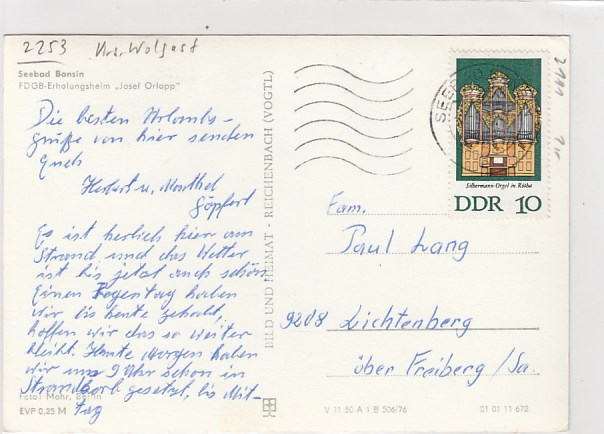 2253 Krs. Wolgast
Seebad Bansin
FDGB-Erholungsheim „Josef Orlopp"
Die besten Urlaubs-
grüße von hier senden
Euch
Herbert u. Marthel
Göpfert
Es ist herlich hier am
Strand und das Wetter
ist bis jetzt auch schön.
Einen Regentag haben
wir bis heute gehabt,
hoffen wir das so weiter
bleibt. Heute Morgen haben
wir um 9 Uhr schon in
Strandkorb gesetzt, bis Mit-
tag
Foto: Mohr, Berlin
EVP 0,25 M
BILD UND HEIMAT · REICHENBACH (VOGTL)
V 11 50 A 1 B 506/76
01 01 11 672
SEEB
Silbermann-Orgel in Rötha
DDR 10
Fam.
Paul Lang
9208 Lichtenberg
über Freiberg / Sa.